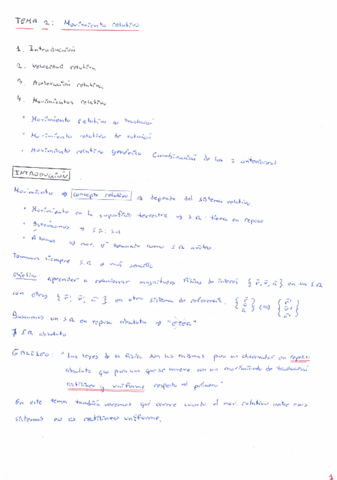 TEMA 2: Movimiento relativo
1. Introducción
2. Velocidad relativa
3. Aceleración relativa
4. Movimientos relativos
• Movimiento relativo de traslación
• Movimiento relativo de rotación
• Movimiento relativo genérico (combinación de los 2 anteriores)
INTRODUCCIÓN
Movimiento → concepto relativo → depende del sistema relativo
• Movimiento en la superficie terrestre → S.R. tierra en reposo
• Astronomos → S.R. Sol
• Átomos → como S.R. núcleo
Tomamos siempre S.R. más sencillo
Objetivo: aprender a relacionar magnitudes físicas de interés en un S.R.
con otros en otro sistema de referencia.
Buscamos un S.R. en reposo absoluto → "ETER"
∄ S.R. absoluto
GALILEO: "Las leyes de la física son las mismas para un observador en reposo
absoluto que para uno que se mueve con un movimiento de traslación
rectilíneo y uniforme respecto al primero"
En este tema también veremos qué ocurre cuando el mov. relativo entre
sistemas no es rectilíneo uniforme.
1